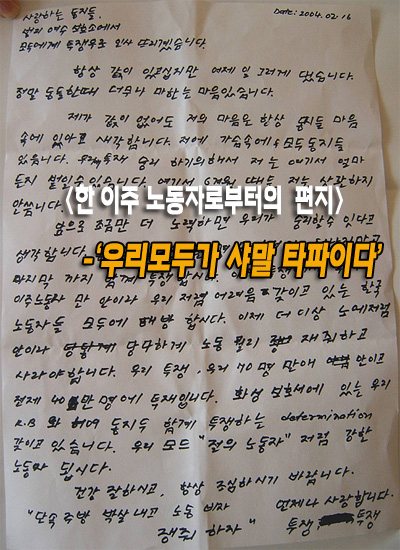 사랑하는 동지들.
Date: 2004. 02. 16
보호소에서
모두에게 투쟁우로 인사 드리겠습니다.
항상 같이 있고십지만 어제 일 그러게 됐습니다.
정말 동동한때 더무나 마하는 마음있습니다.
제가 같이 없어도 저의 마음은 항상 동지들 마음
속에 있아고 새각합니다. 저에 가슴속에 모두 동지들
있읍니다. 우리 투재 승리 하기 위해서 저는 여기서 얼마
든지 있습니다. 여기서 저는 상관하지
안씁니다
〈한 이주 노동자로부터의 편지〉
앞으로 조금만 더 노력하면 우리가 있다고
생각합니다
-‘우리모두가 샤말 타파이다’
마지막 까지 함게 투쟁합시다
이주노동자 만 안이라 우리 저럼 어려움을 갖이고 있는 한국
노동자들 모두에 해방 합시다. 이제 더 이상 노에저럼
안이라 당당하게 노동 권리 재취하고
사라야합니다. 우리 투쟁, 우리 40명 만애 안이고
전제 40만 명에 투재입니다. 화성 보호서에 있는 우리
K.B 와 동지두 함게 투쟁하는 determination
갖이고 있습니다. 우리 모드 "절의 노동자" 저점 강한
노동자 됩시다.
건강 잘하시고, 항상 조심하시기 바랍니다.
언제나 사랑합니다.
"단속 추방 박살 내고 노동 비자
쟁취 하자"
투쟁, 투쟁